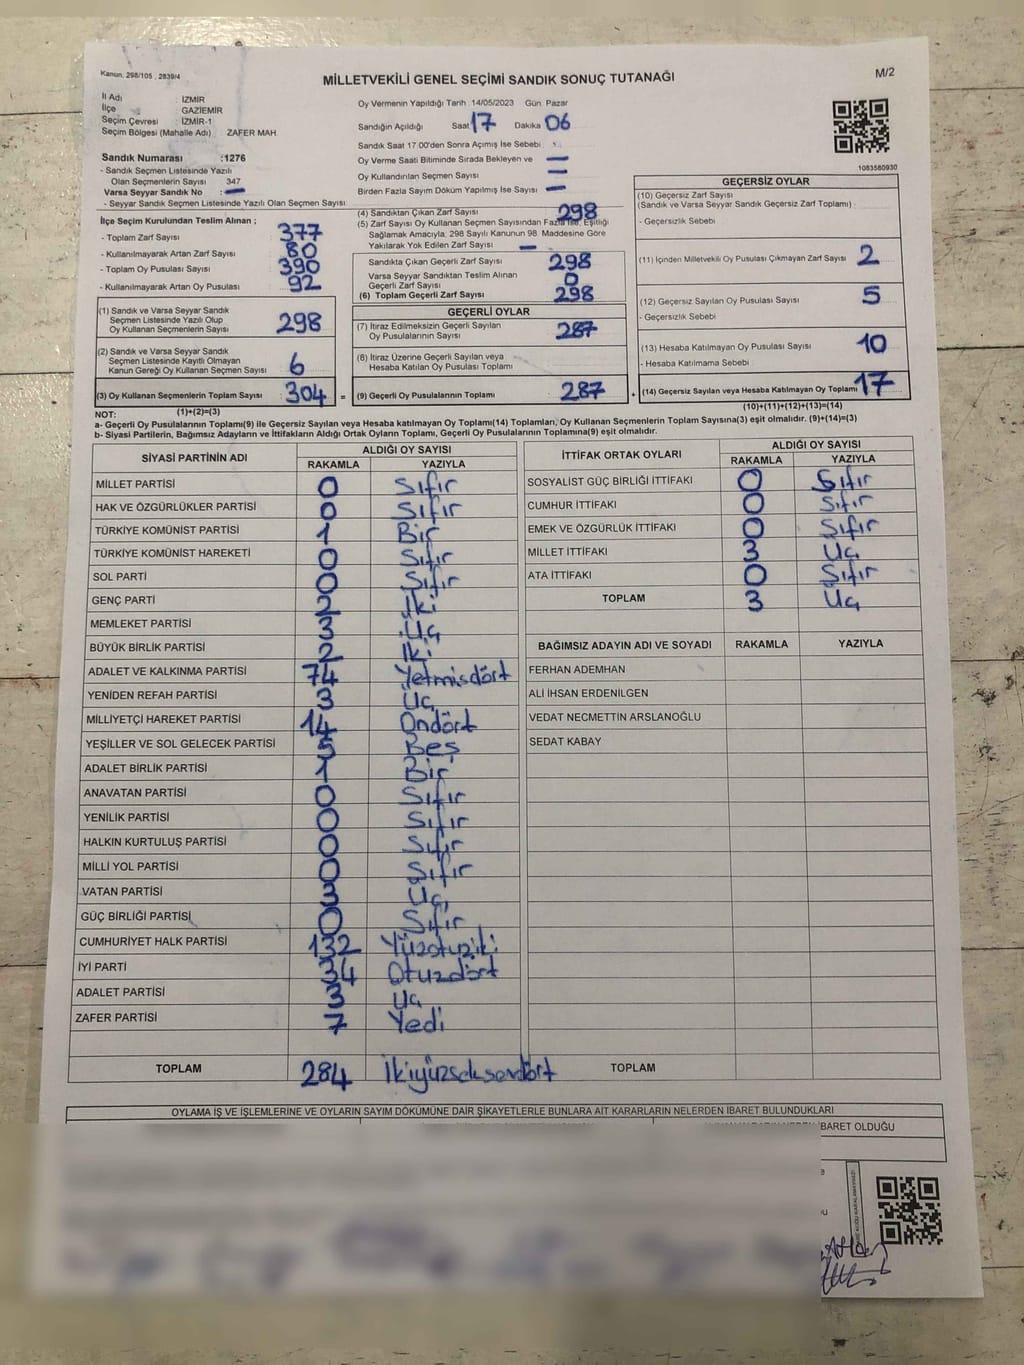 Kanun, 298/105 , 2839/4
MİLLETVEKİLİ GENEL SEÇİMİ SANDIK SONUÇ TUTANAĞI
M/2
İl Adı : İZMİR
İlçe : GAZİEMİR
Seçim Çevresi : İZMİR-1
Seçim Bölgesi (Mahalle Adı) ZAFER MAH.
Sandık Numarası :1276
- Sandık Seçmen Listesinde Yazılı
Olan Seçmenlerin Sayısı 347
Varsa Seyyar Sandık No : —
- Seyyar Sandık Seçmen Listesinde Yazılı Olan Seçmen Sayısı
Oy Vermenin Yapıldığı Tarih 14/05/2023 Gün Pazar
Sandığın Açıldığı Saat 17 Dakika 06
Sandık Saat 17.00'den Sonra Açımış İse Sebebi
Oy Verme Saati Bitiminde Sırada Bekleyen ve —
Oy Kullandırılan Seçmen Sayısı —
Birden Fazla Sayım Döküm Yapılmış İse Sayısı —
1083580930
İlçe Seçim Kurulundan Teslim Alınan ;
- Toplam Zarf Sayısı 377
- Kullanılmayarak Artan Zarf Sayısı 80
- Toplam Oy Pusulası Sayısı 390
- Kullanılmayarak Artan Oy Pusulası 92
(1) Sandık ve Varsa Seyyar Sandık
Seçmen Listesinde Yazılı Olup
Oy Kullanan Seçmenlerin Sayısı 298
(2) Sandık ve Varsa Seyyar Sandık
Seçmen Listesinde Kayıtlı Olmayan
Kanun Gereği Oy Kullanan Seçmen Sayısı 6
(3) Oy Kullanan Seçmenlerin Toplam Sayısı 304 =
(1)+(2)=(3)
(4) Sandıktan Çıkan Zarf Sayısı 298
(5) Zarf Sayısı Oy Kullanan Seçmen Sayısından Fazla İse, Eşitliği
Sağlamak Amacıyla; 298 Sayılı Kanunun 98. Maddesine Göre
Yakılarak Yok Edilen Zarf Sayısı —
Sandıkta Çıkan Geçerli Zarf Sayısı 298
Varsa Seyyar Sandıktan Teslim Alınan
Geçerli Zarf Sayısı 0
(6) Toplam Geçerli Zarf Sayısı 298
GEÇERLİ OYLAR
(7) İtiraz Edilmeksizin Geçerli Sayılan
Oy Pusulalarının Sayısı 287
(8) İtiraz Üzerine Geçerli Sayılan veya
Hesaba Katılan Oy Pusulası Toplamı
(9) Geçerli Oy Pusulalarının Toplamı 287 +
GEÇERSİZ OYLAR
(10) Geçersiz Zarf Sayısı
(Sandık ve Varsa Seyyar Sandık Geçersiz Zarf Toplamı)
- Geçersizlik Sebebi
(11) İçinden Milletvekili Oy Pusulası Çıkmayan Zarf Sayısı 2
(12) Geçersiz Sayılan Oy Pusulası Sayısı 5
- Geçersizlik Sebebi
(13) Hesaba Katılmayan Oy Pusulası Sayısı 10
- Hesaba Katılmama Sebebi
(14) Geçersiz Sayılan veya Hesaba Katılmayan Oy Toplamı 17
(10)+(11)+(12)+(13)=(14)
NOT:
a- Geçerli Oy Pusulaları Toplamı(9) ile Geçersiz Sayılan veya Hesaba katılmayan Oy Toplamı(14) Toplamları, Oy Kullanan Seçmenlerin Toplam Sayısına(3) eşit olmalıdır. (9)+(14)=(3)
b- Siyasi Partilerin, Bağımsız Adayların ve İttifakların Aldığı Ortak Oyların Toplamı, Geçerli Oy Pusulalarının Toplamına(9) eşit olmalıdır.
SİYASİ PARTİNİN ADI ALDIĞI OY SAYISI
RAKAMLA YAZIYLA
MİLLET PARTİSİ 0 Sıfır
HAK VE ÖZGÜRLÜKLER PARTİSİ 0 Sıfır
TÜRKİYE KOMÜNİST PARTİSİ 1 Bir
TÜRKİYE KOMÜNİST HAREKETİ 0 Sıfır
SOL PARTİ 0 Sıfır
GENÇ PARTİ 2 İki
MEMLEKET PARTİSİ 3 Üç
BÜYÜK BİRLİK PARTİSİ 2 İki
ADALET VE KALKINMA PARTİSİ 74 Yetmisdört
YENİDEN REFAH PARTİSİ 3 Üç
MİLLİYETÇİ HAREKET PARTİSİ 14 Ondört
YEŞİLLER VE SOL GELECEK PARTİSİ 5 Beş
ADALET BİRLİK PARTİSİ 1 Bir
ANAVATAN PARTİSİ 0 Sıfır
YENİLİK PARTİSİ 0 Sıfır
HALKIN KURTULUŞ PARTİSİ 0 Sıfır
MİLLİ YOL PARTİSİ 0 Sıfır
VATAN PARTİSİ 3 Üç
GÜÇ BİRLİĞİ PARTİSİ 0 Sıfır
CUMHURİYET HALK PARTİSİ 132 Yüzotuziki
İYİ PARTİ 34 Otuzdört
ADALET PARTİSİ 3 Üç
ZAFER PARTİSİ 7 Yedi
TOPLAM 284 İkiyüzseksendört
İTTİFAK ORTAK OYLARI ALDIĞI OY SAYISI
RAKAMLA YAZIYLA
SOSYALİST GÜÇ BİRLİĞİ İTTİFAKI 0 Sıfır
CUMHUR İTTİFAKI 0 Sıfır
EMEK VE ÖZGÜRLÜK İTTİFAKI 0 Sıfır
MİLLET İTTİFAKI 3 Üç
ATA İTTİFAKI 0 Sıfır
TOPLAM 3 Üç
BAĞIMSIZ ADAYIN ADI VE SOYADI RAKAMLA YAZIYLA
FERHAN ADEMHAN
ALİ İHSAN ERDENİLGEN
VEDAT NECMETTİN ARSLANOĞLU
SEDAT KABAY
TOPLAM
OYLAMA İŞ VE İŞLEMLERİNE VE OYLARIN SAYIM DÖKÜMÜNE DAİR ŞİKAYETLERLE BUNLARA AİT KARARLARIN NELERDEN İBARET BULUNDUKLARI
İBARET OLDUĞU